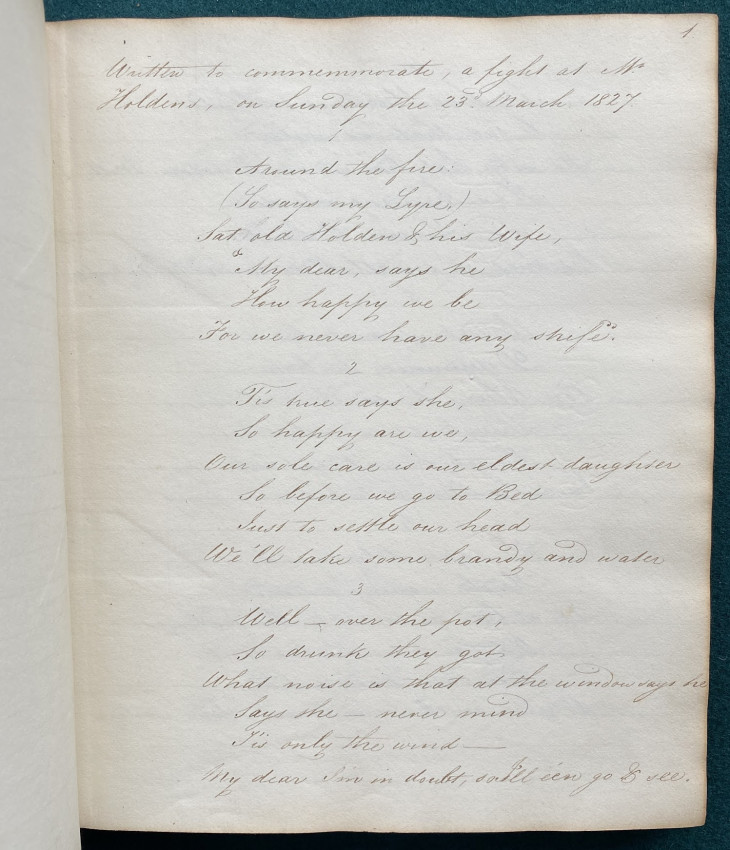 1
Written to commemmorate, a fight at Mr
Holdens, on Sunday the 23d. March 1827
1
Around the fire:
(So says my Lyre,)
Sat old Holden & his Wife,
"My dear, says he
How happy we be
For we never have any strife".
2
Tis true says she,
So happy are we,
Our sole care is our eldest daughter
So before we go to Bed
Just to settle our head
We'll take some brandy and water
3
Well — over the pot,
So drunk they got
What noise is that at the window says he
Says she — never mind
Tis only the wind —
My dear I'm in doubt, so I'll e'en go & see.